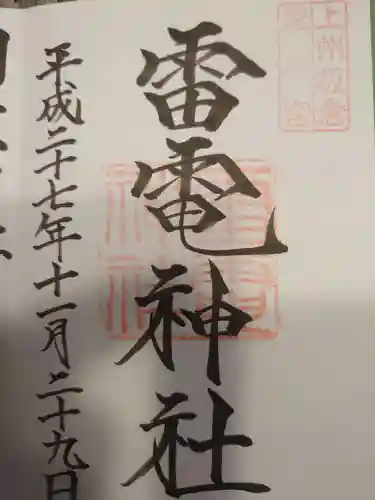 上州板倉
雷電神社
平成二十七年十一月二十九日